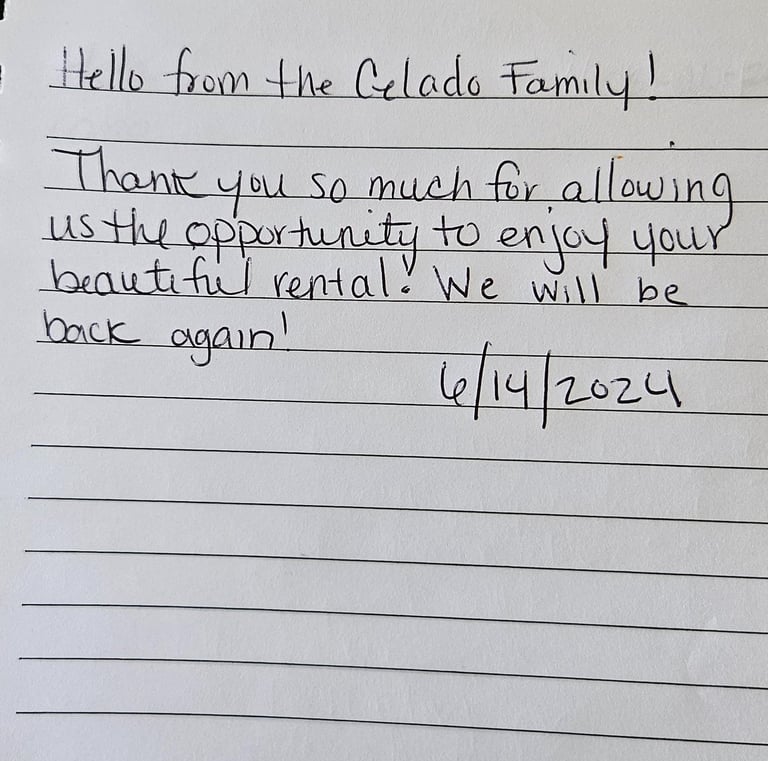 Hello from the Celado Family!
Thank you so much for allowing
us the opportunity to enjoy your
beautiful rental! We will be
back again!
6/14/2024